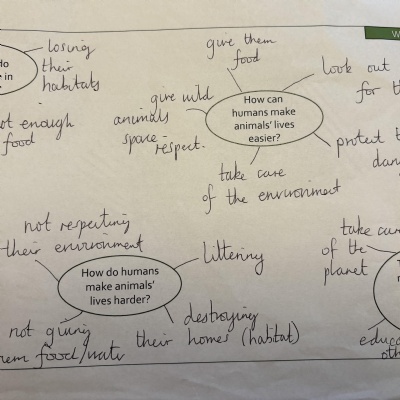 W
losing
their
habitats
lo
e in
ot enough
food
give them
food
look out
for th
give wild
animals
space
respect.
How can
humans make
animals' lives
easier?
protect t
dan
take care
of the environment
not respecting
their environment
littering
How do humans
make animals'
lives harder?
not giving
hem food/wate
destroying
their homes (habitat)
take car
of the
planet
educa
oth